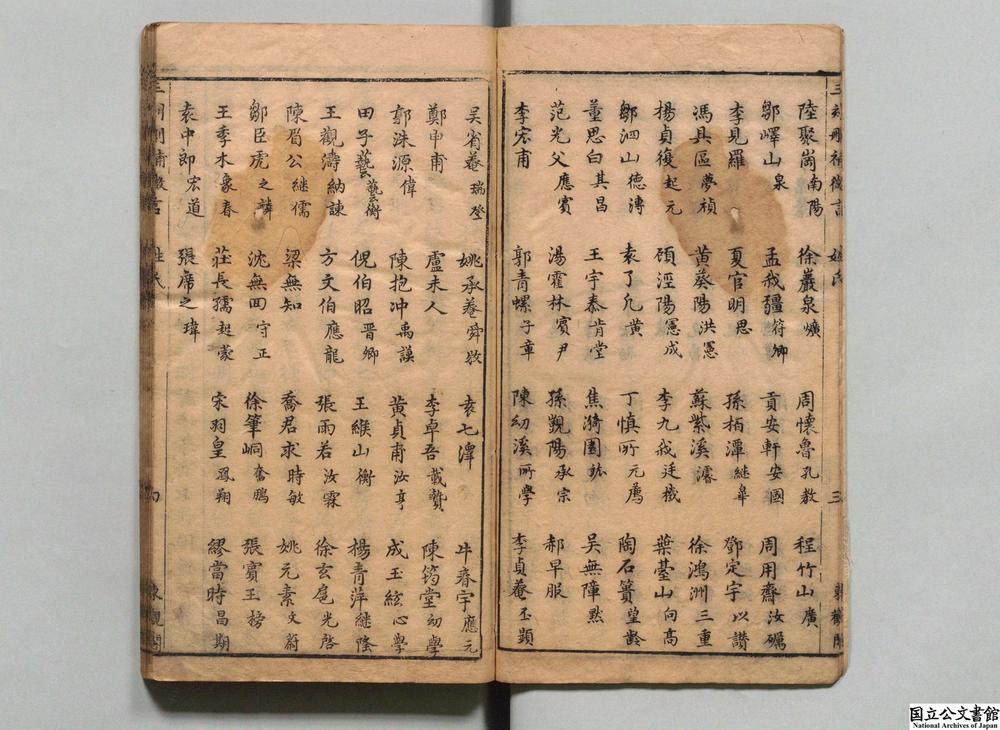 陸聚崗南陽 徐巖泉爌 周懷魯孔教 程竹山廣
鄒嶧山泉 孟我疆符卿 貢安軒安國 周用齋汝礪
李見羅 夏官明思 孫栢潭継皐 鄧定宇以讃
馮具區夢禎 黄葵陽洪憲 蘇紫溪濬 徐鴻洲三重
楊貞復起元 顧涇陽憲成 李九我廷機 葉臺山向高
鄒泗山德溥 袁了凡黄 丁慎所元薦 陶石簣望齡
董思白其昌 王宇泰肯堂 焦漪園竑 吴無障黙
范光父應賓 湯霍林賓尹 孫觀陽承宗 郝早服
李宏甫 郭青螺子章 陳幼溪所學 李貞菴丕顕
吴省菴瑞登 姚承菴舜牧 袁七澤 牛春宇應元
鄭申甫 盧未人 李卓吾載贄 陳筠堂幼學
郭洙源偉 陳抱冲禹謨 黄貞甫汝亨 成玉絃心學
田子藝藝衡 倪伯昭晋卿 王緱山衡 楊青萍継隆
王觀濤納諫 方文伯應龍 張雨若汝霖 徐玄扈光啓
陳眉公継儒 梁無知 喬君求時敏 姚元素文蔚
鄒臣虎之麟 沈無回守正 徐筆峒奮鵬 張賓王榜
王季木象春 莊長孺起蒙 宋羽皇鳳翔 繆當時昌期
袁中郎宏道 張席之瑋
国立公文書館
National Archives of Japan